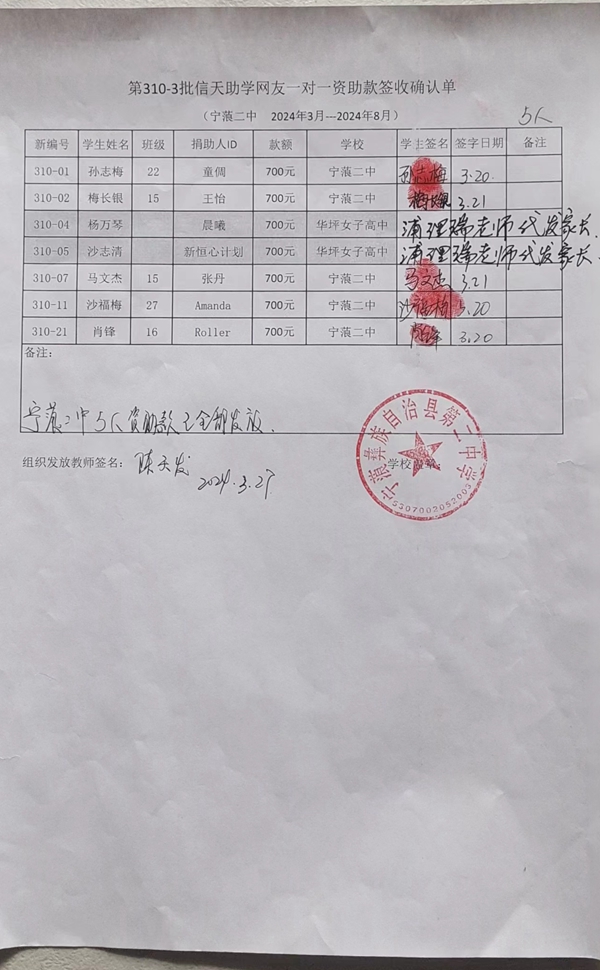 第310-3批信天助学网友一对一资助款签收确认单
（宁蒗二中 2024年3月---2024年8月）
5人
新编号 学生姓名 班级 捐助人ID 款额 学校 学生签名 签字日期 备注
310-01 孙志梅 22 童倜 700元 宁蒗二中 孙志梅 3.20.
310-02 梅长银 15 王怡 700元 宁蒗二中 梅长银 3.21
310-04 杨万琴 晨曦 700元 华坪女子高中 浦理瑞老师代发家长.
310-05 沙志清 新恒心计划 700元 华坪女子高中 浦理瑞老师代发家长.
310-07 马文杰 15 张丹 700元 宁蒗二中 马文杰 3.21
310-11 沙福梅 27 Amanda 700元 宁蒗二中 沙福梅 3.20
310-21 肖锋 16 Roller 700元 宁蒗二中 肖锋 3.20
备注：
宁蒗二中5人资助款已全部发放.
组织发放教师签名： 陈天发 学校盖章：
2024.3.27
宁蒗彝族自治县第二中学
5307002052003